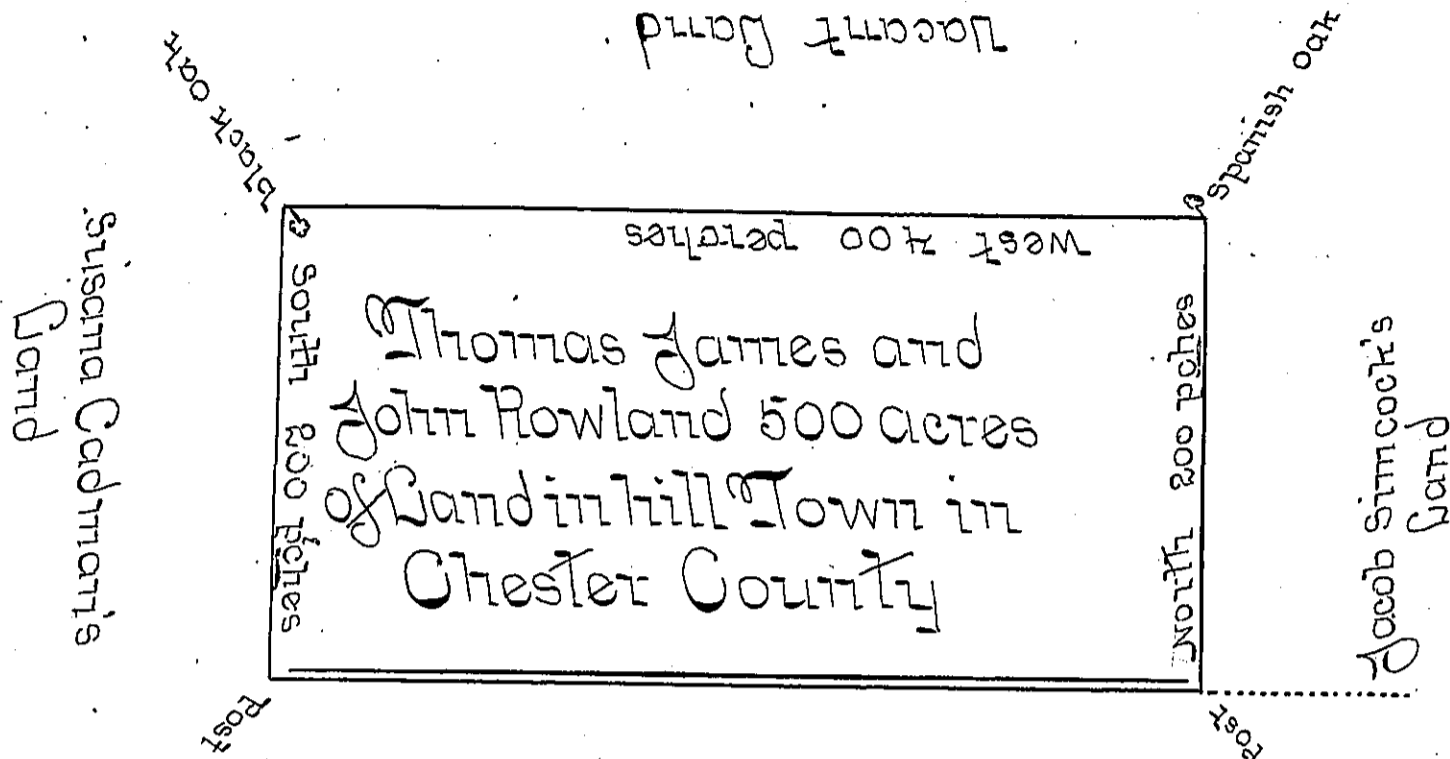 Vacant Land
black oak
Spanish oak
West 400 perches
Susana Cadman's
Land
South 200 p'ches
Thomas James and
John Rowland 500 acres
of Land in hill Town in
Chester County
North 200 pches
Jacob Simcock's
Land
Post
Post